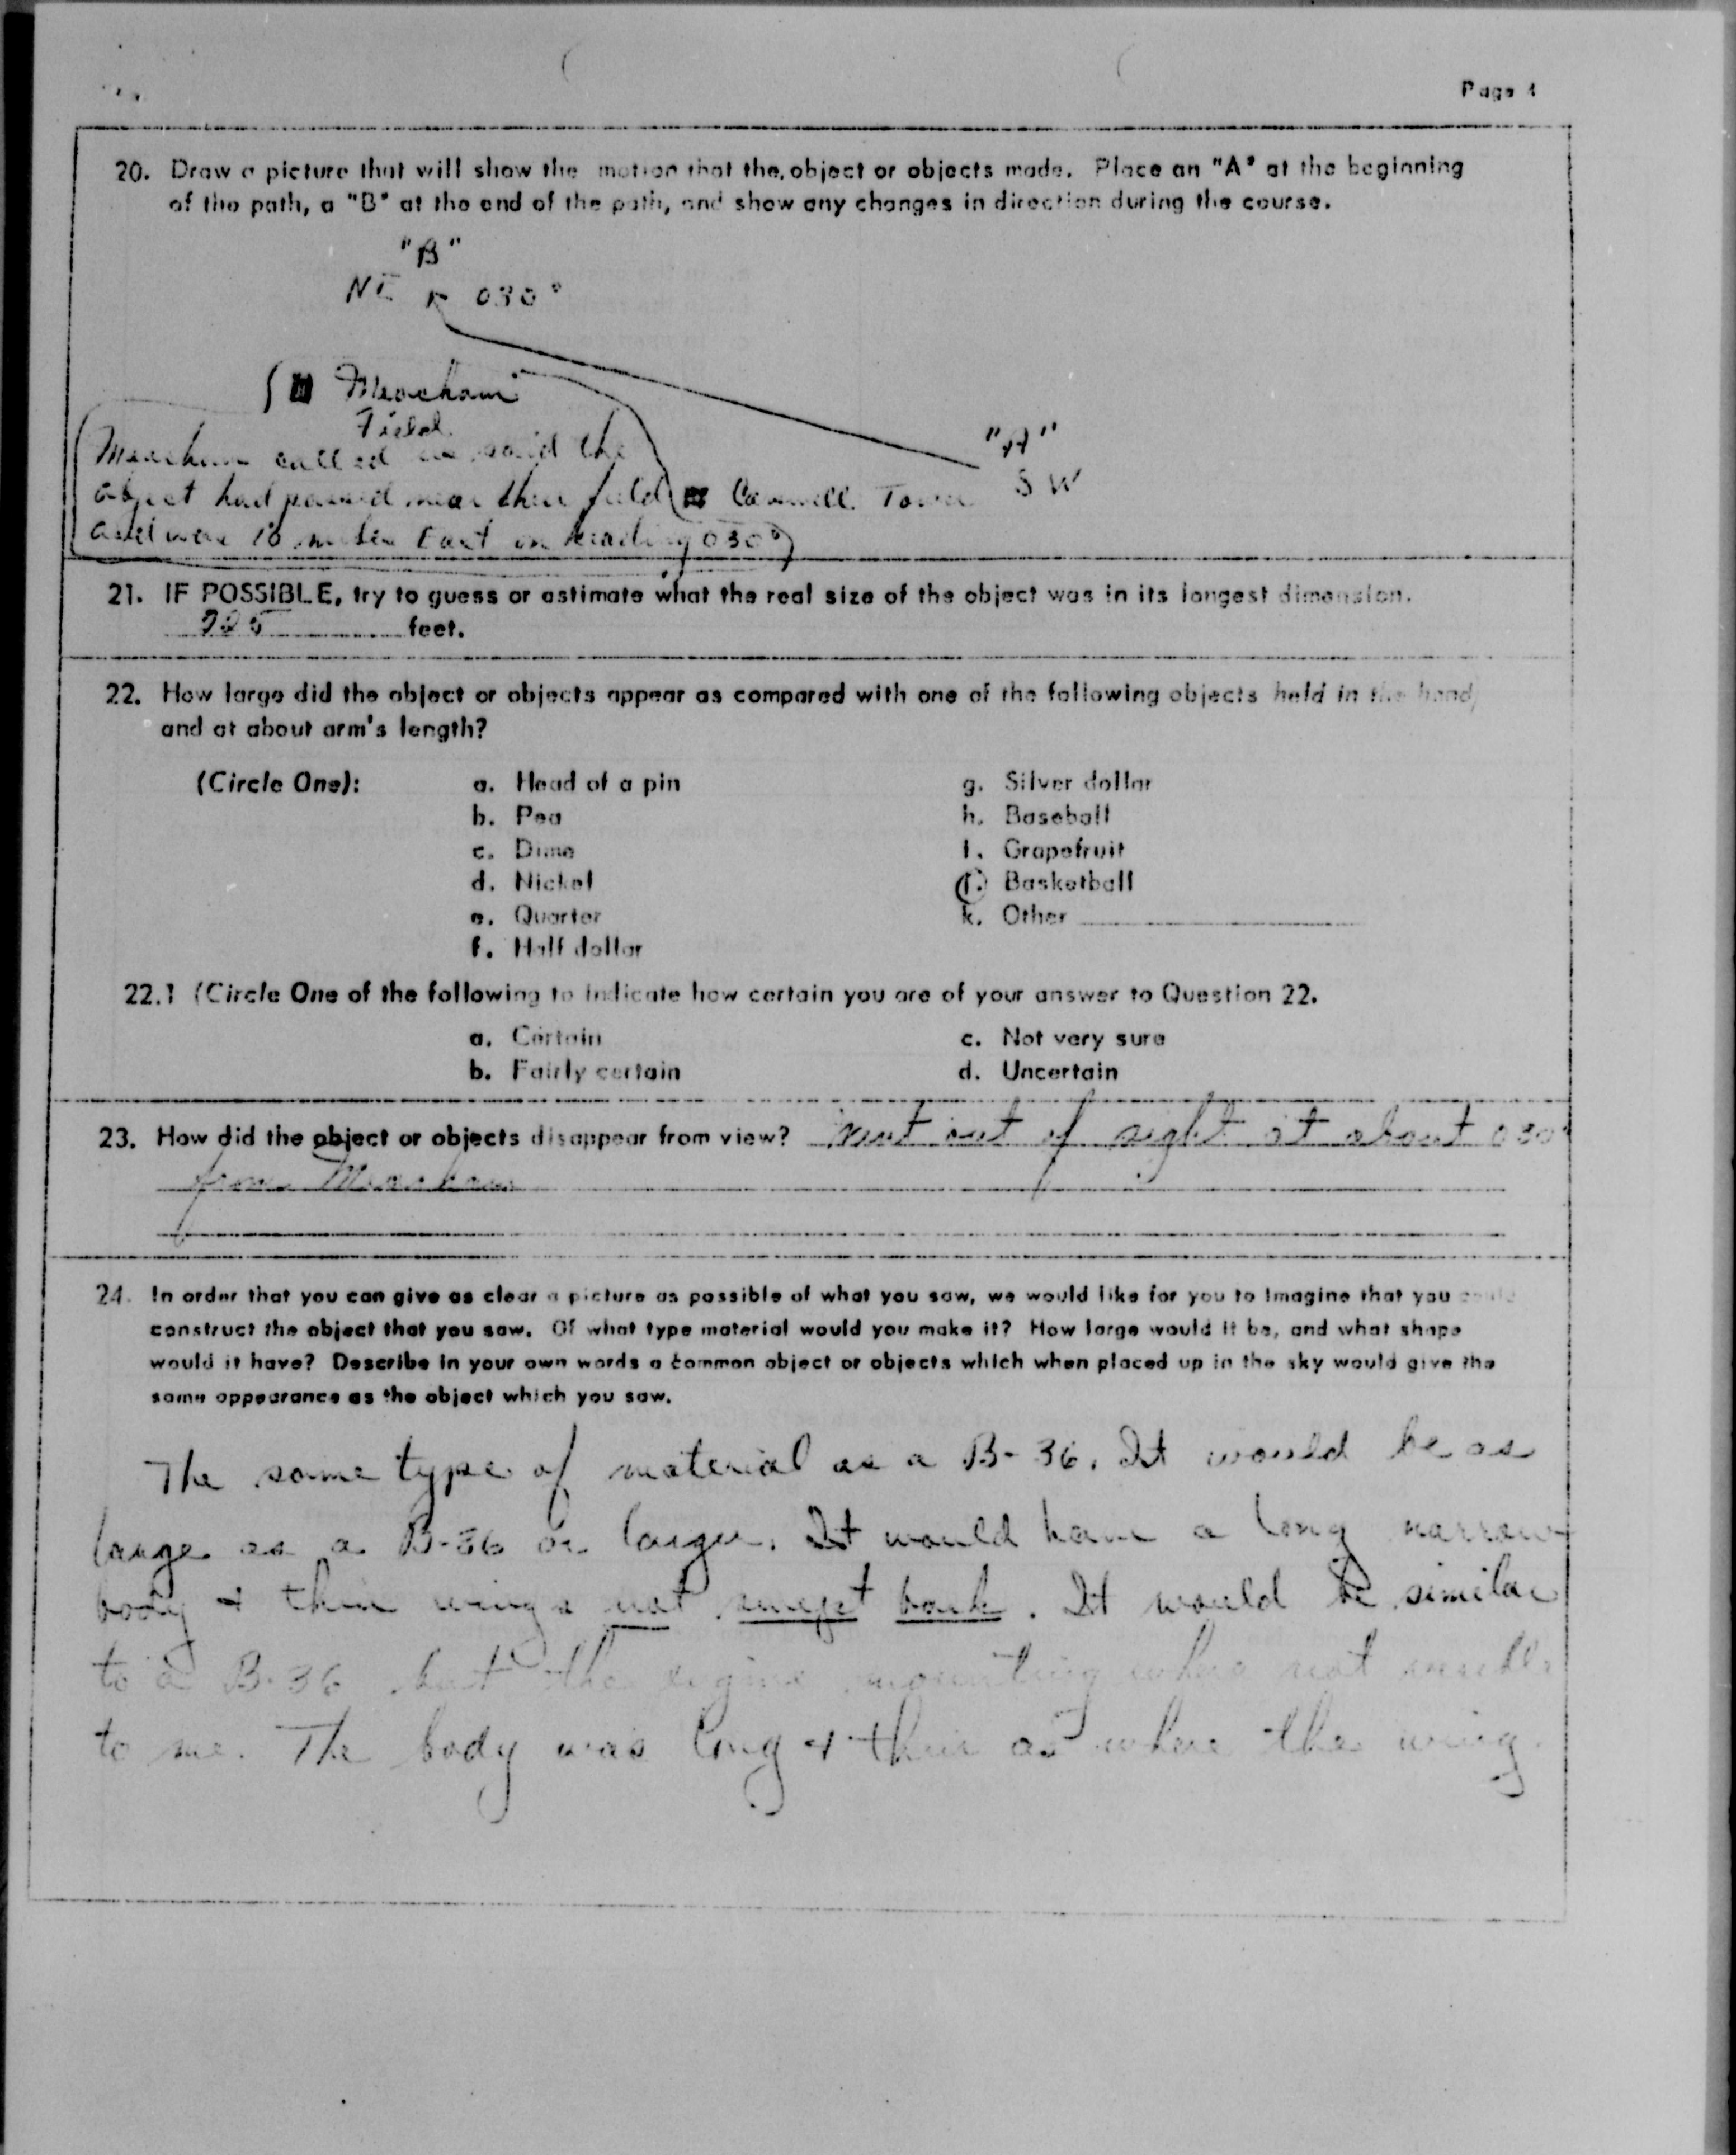 Page 4
20. Draw a picture that will show the motion that the object or objects made. Place an "A" at the beginning
of the path, a "B" at the end of the path, and show any changes in direction during the course.
"B"
NE 030°
Meacham
Field
"A"
SW
Meacham called us said the
object had passed near their field Carswell Tower
and were 10 miles East on heading 030°
21. IF POSSIBLE, try to guess or estimate what the real size of the object was in its longest dimension.
feet.
22. How large did the object or objects appear as compared with one of the following objects held in the hand
and at about arm's length?
(Circle One): a. Head of a pin g. Silver dollar
b. Pea h. Baseball
c. Dime i. Grapefruit
d. Nickel j. Basketball
e. Quarter k. Other
f. Half dollar
22.1 (Circle One of the following to indicate how certain you are of your answer to Question 22.
a. Certain c. Not very sure
b. Fairly certain d. Uncertain
23. How did the object or objects disappear from view? Went out of sight at about 030°
from Meacham
24. In order that you can give as clear a picture as possible of what you saw, we would like for you to imagine that you could
construct the object that you saw. Of what type material would you make it? How large would it be, and what shape
would it have? Describe in your own words a common object or objects which when placed up in the sky would give the
same appearance as the object which you saw.
The same type of material as a B-36. It would be as
large as a B-36 or larger. It would have a long narrow
body & thin wings not swept back. It would be similar
to a B-36 but the engine mounting where not visible
to me. The body was long & thin as where the wing